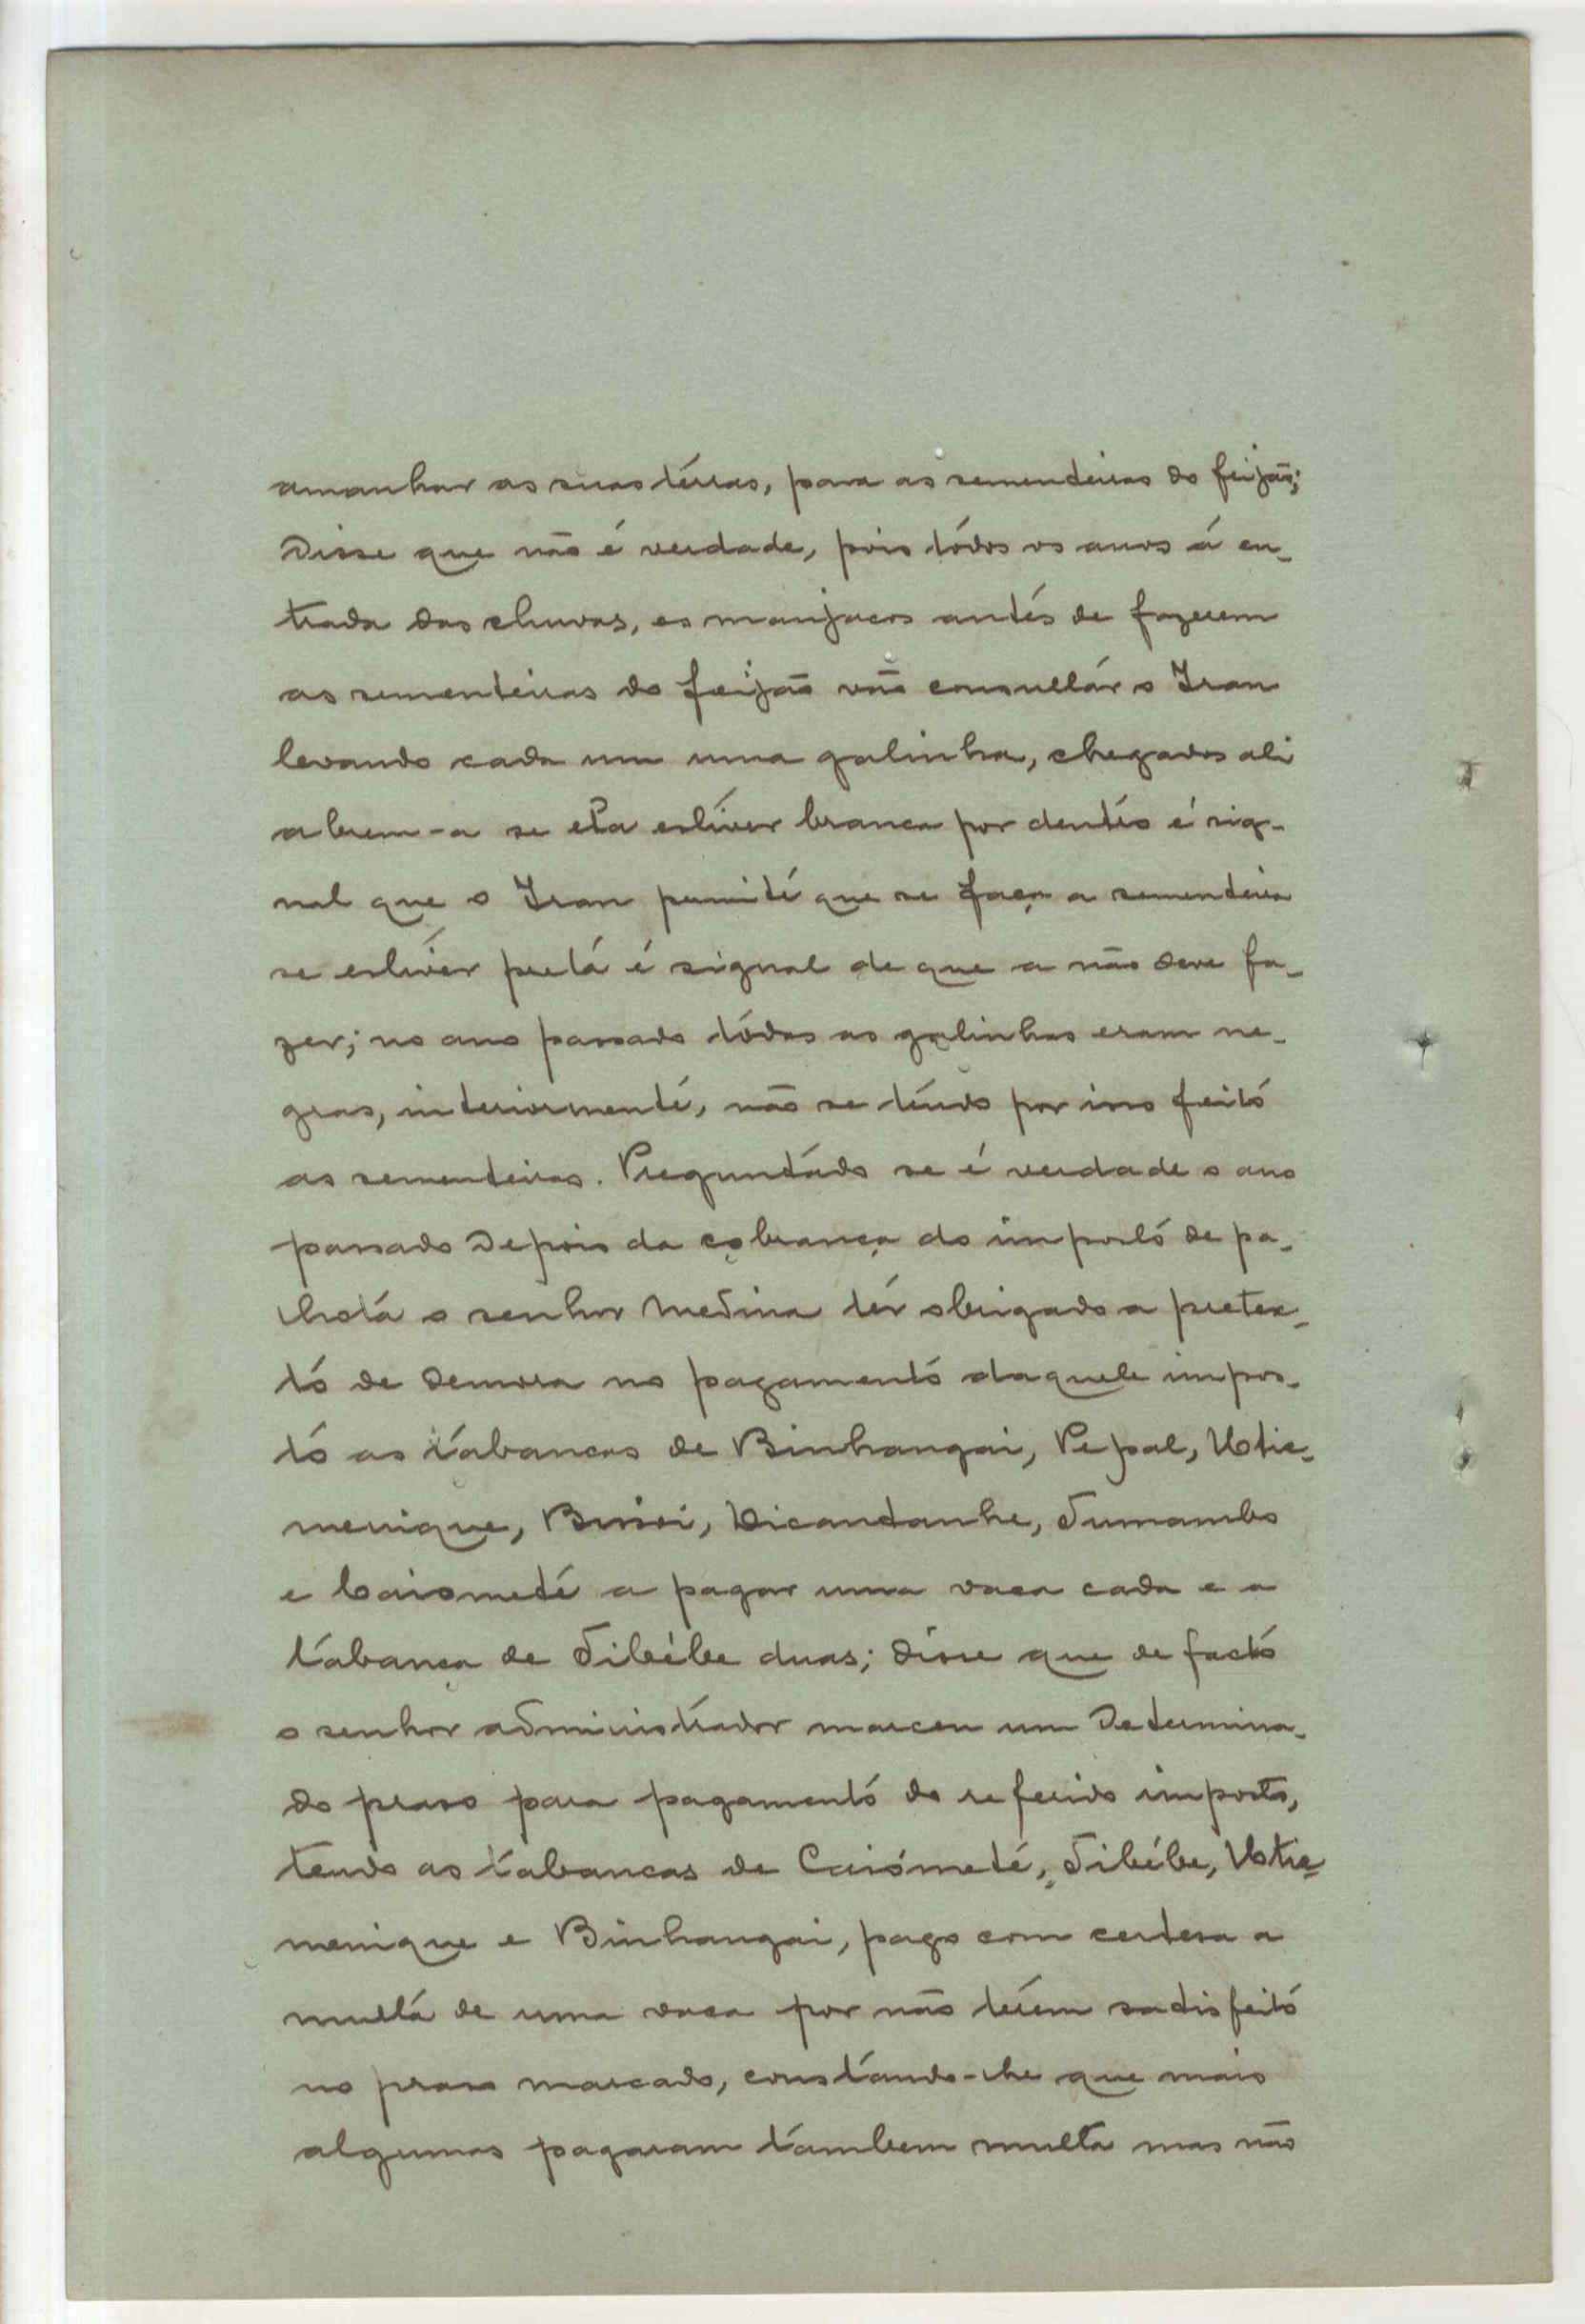 amanhar as suas terras, para as sementeiras do feijão;
Disse que não é verdade, pois todos os anos á en-
trada das chuvas, os manjacos antes de fazerem
as sementeiras do feijão vão consultar o Iran
levando cada um uma galinha, chegados ali
abrem-a se ela estiver branca por dentro é sig-
nal que o Iran permite que se faça a sementeira
se estiver preta é signal de que a não deve fa-
zer; no ano passado todas as galinhas eram ne-
gras, interiormente, não se tendo por isso feito
as sementeiras. Preguntado se é verdade o ano
passado depois da cobrança do imposto de pa-
lhota o senhor Medina ter obrigado a pretex-
to de demora no pagamento daquele impos-
to as tabancas de Binhangai, Pepal, Utie-
menique, Bissoi, Dicandanhe, Tumambo
e Caiomete a pagar uma vaca cada e a
tabanca de Tibébe duas; disse que de facto
o senhor administrador marcou um determina-
do praso para pagamento do referido imposto,
tendo as tabancas de Caiómete, Tibébe, Utie-
menique e Binhangai, pago com certesa a
multa de uma vaca por não terem satisfeito
no praso marcado, constando-lhe que mais
algumas pagaram tambem multa mas não